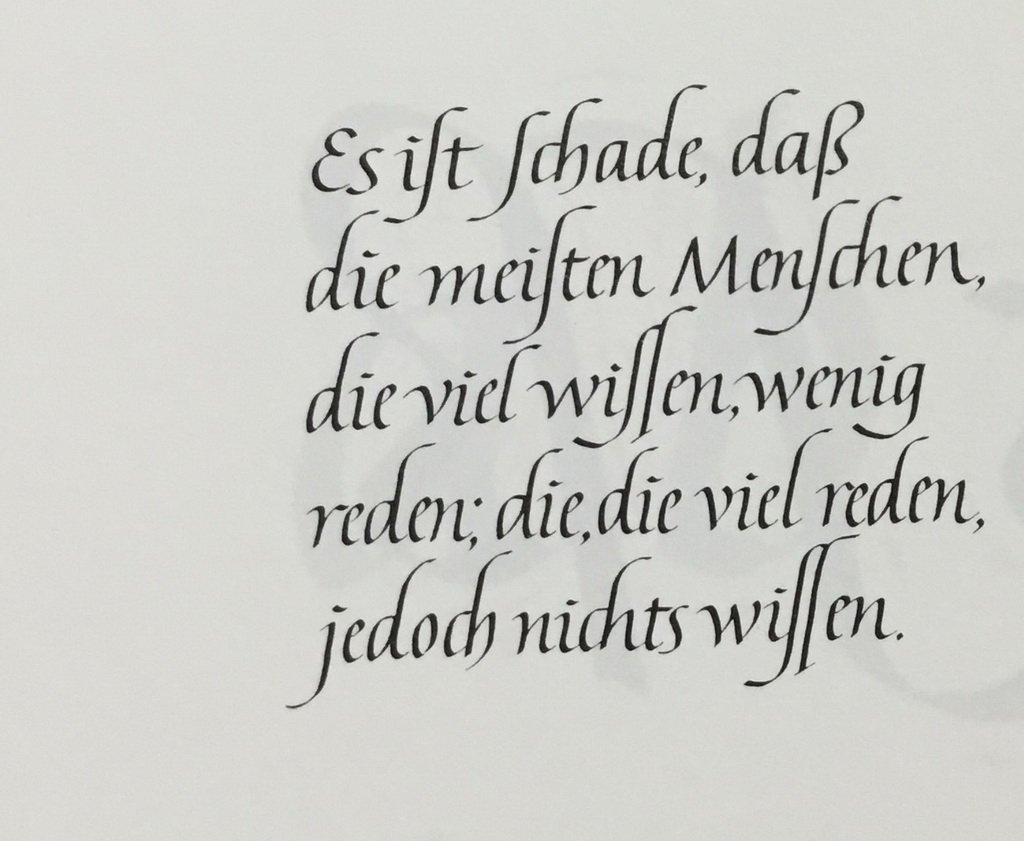 Es iſt ſchade, daß
die meiſten Menſchen,
die viel wiſſen, wenig
reden; die, die viel reden,
jedoch nichts wiſſen.